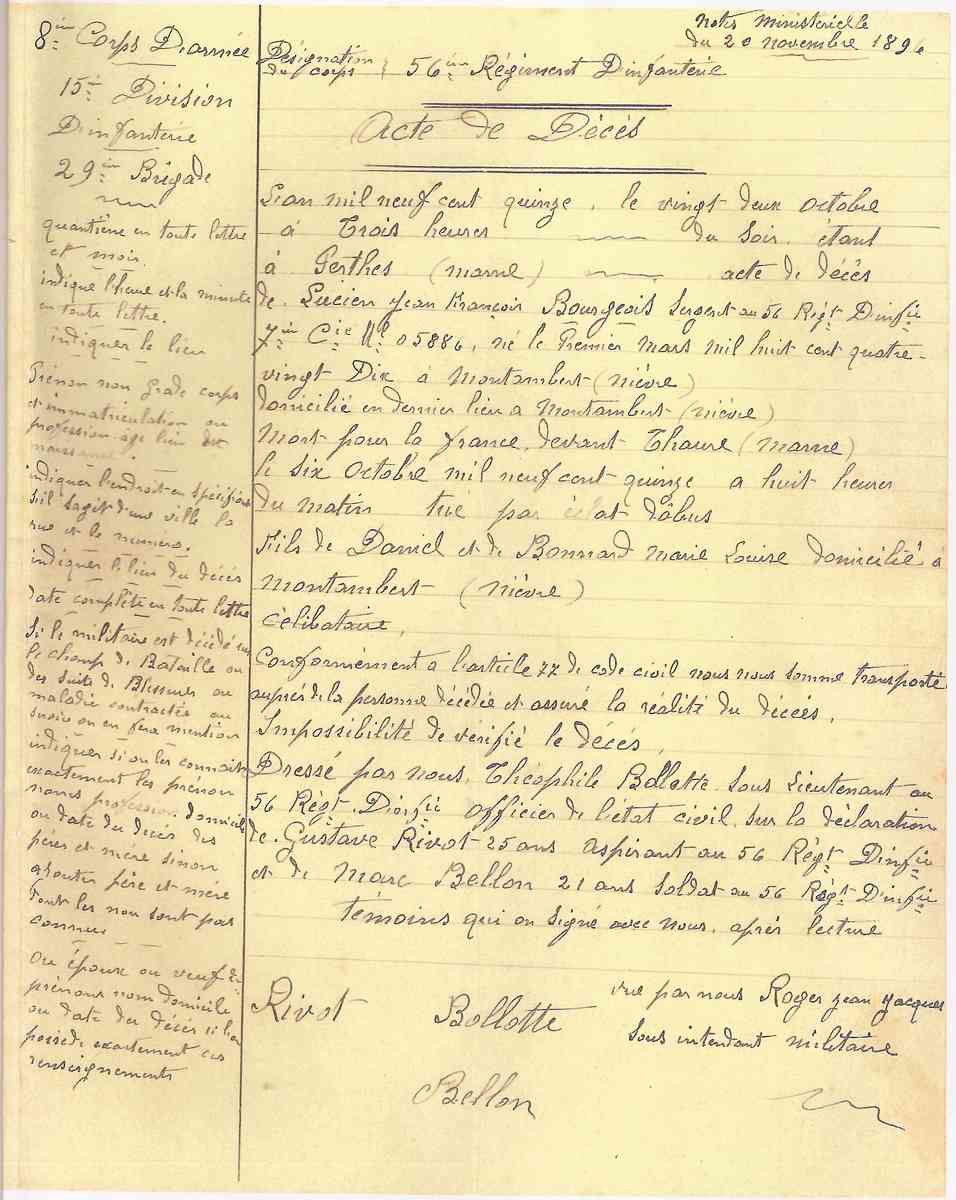 Note ministerielle
du 20 novembre 1896
8ième Corps D'armée
15è Division
D'infanterie
29ième Brigade
quantième en toute lettre
et mois.
indiqué l'heure et la minute
en toute lettre.
indiquer le lieu
Prénom nom grade corps
et immatriculation ou
profession âge lieu de
naissance.
indiquer l'endroit en spécifiant
s'il sagit d'une ville la
rue et le numero.
indiquer le lieu du décés
date complète en toute lettre
Si le militaire est décédé sur
le champ de Bataille ou
des suite de Blessures ou
maladie contractés ou
on en fera mention
indiquer si on les connait
exactement les prénom
noms profession domicile
ou date du decés des
pères et mère sinon
ajouter père et mère
dont les nom sont pas
connus
Ou époux ou veuf de
prénoms nom domicile
ou date du décés si l'on
possede exactement ces
renseignements
Désignation
du corps } 56ième Régiment D'infanterie
Acte de Décés
L'an mil neuf cent quinze, le vingt deux octobre
à Trois heures du soir, étant
à Perthes (marne) acte de décès
de Lucien Jean François Bourgeois Sergent au 56 Régt Dinfie
7ième Cie Ml 05886, né le Premier mars mil huit cent quatre-
vingt Dix à Montambert (nièvre)
domicilié en dernier lieu a Montambert (nièvre)
Mort pour la france devant Thaure (marne)
le six Octobre mil neuf cent quinze a huit heures
du matin tué par éclat d'obus
Fils de Daniel et de Bonnard Marie Louise domicilié à
Montambert (nièvre)
Célibataire,
Conformément a l'article 77 de code civil nous nous somme transporté
auprés de la personne décédée et assuré la réalité du décées,
Impossibilité de vérifié le décés,
Dressé par nous, Théophile Bollotte Sous Lieutenant au
56 Régt Dinfie officier de l'état civil, sur la déclaration
de Gustave Rivot 25 ans aspirant au 56 Régt Dinfie
et de Marc Bellon 21 ans soldat au 56 Régt Dinfie
témoins qui on signé avec nous, après lecture
Rivot Bollotte vue par nous Roger jean Jacques
sous intendant militaire
Bellon